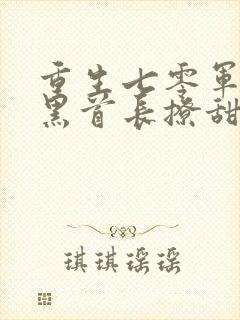 重生七零军
黑首长撩甜
琪琪瑶瑶